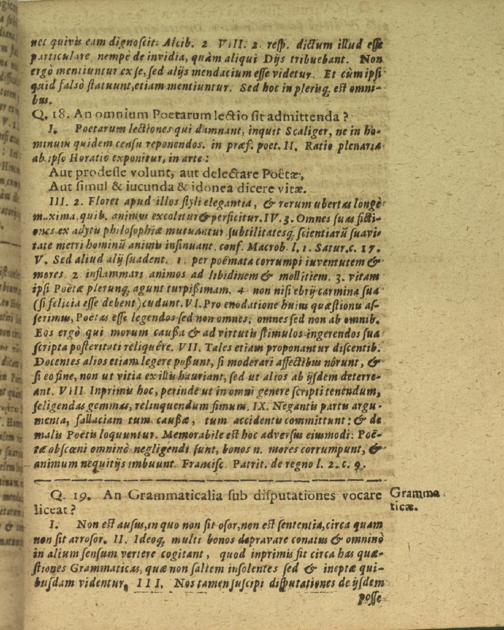 nec quivis eam dignoscit: Alcib. 2. VIII. 2. resp. dictum illud esse
particulare nempe de invidia, quam aliqui Dijs tribuebant. Non
ergò mentiuntur ex se, sed alijs mendacium esse videtur. Et cùm ipsi
quid falsò statuunt, etiam mentiuntur. Sed hoc in plerisq; est omni-
bus.
Q. 18. An omnium Poetarum lectio sit admittenda?
I. Poetarum lectiones qui damnant, inquit Scaliger, ne in ho-
minum quidem censu reponendos. in præf. poet. II. Ratio plenaria
ab ipso Horatio exponitur, in arte:
Aut prodesse volunt, aut delectare Poëtæ,
Aut simul & iucunda & idonea dicere vitæ.
III. 2. Floret apud illos styli elegantia, & rerum ubertas longè
maxima, quib. animus excolitur & perficitur. IV. 3. Omnes suas ficti-
ones ex adyto philosophiæ mutuantur subtilitatesq; scientiarū suavi-
tate metri hominū animū insinuant. conf. Macrob. l. 1. Satur. c. 17.
V. Sed aliud alij suadent. 1. per poëmata corrumpi iuventutem &
mores 2. inflammari animos ad libidinem & mollitiem. 3. vitam
ipsi Poëtæ plerunq; agunt turpissimam. 4. non nisi ebrij carmina sua
(si felicia esse debent) cudunt. VI. Pro enodatione huius quæstionis as-
serimus, Poëtas esse legendos sed non omnes, omnes sed non ab omnib.
Eos ergò qui morum caussa & ad virtutis stimulos ingerendos sua
scripta posteritati reliquêre. VII. Tales etiam proponantur discentib.
Docentes alios etiam legere possunt, si moderari affectibus nôrunt, &
si eo fine, non ut vitia ex illis hauriant, sed ut alios ab ijsdem deterre-
ant. VIII Inprimis hoc, perinde ut in omni genere scripti tenendum,
seligendas gemmas, relinquendum fimum. IX. Negantis partis argu-
menta, fallaciam tum caussæ, tum accidentis committunt: & de
malis Poëtis loquuntur. Memorabile est hoc adversus eiusmodi: Poë-
tæ obscœni omninò negligendi sunt, bonos n. mores corrumpunt, &
animum nequitijs imbuunt. Francisc. Patrit. de regno l. 2. c. 9.
Q. 19. An Grammaticalia sub disputationes vocare
liceat?
Gramma
ticæ.
I. Non est ausus, in quo non sit osor, non est sententia, circa quam
non sit arrosor. II. Ideoq; multi bonos depravare conatus & omninò
in alium sensum vertere cogitant, quod inprimis sit circa has quæ-
stiones Grammaticas, quæ non saltem insolentes sed & ineptæ qui-
busdam videntur. III. Nos tamen suscipi disputationes de ijsdem
posse